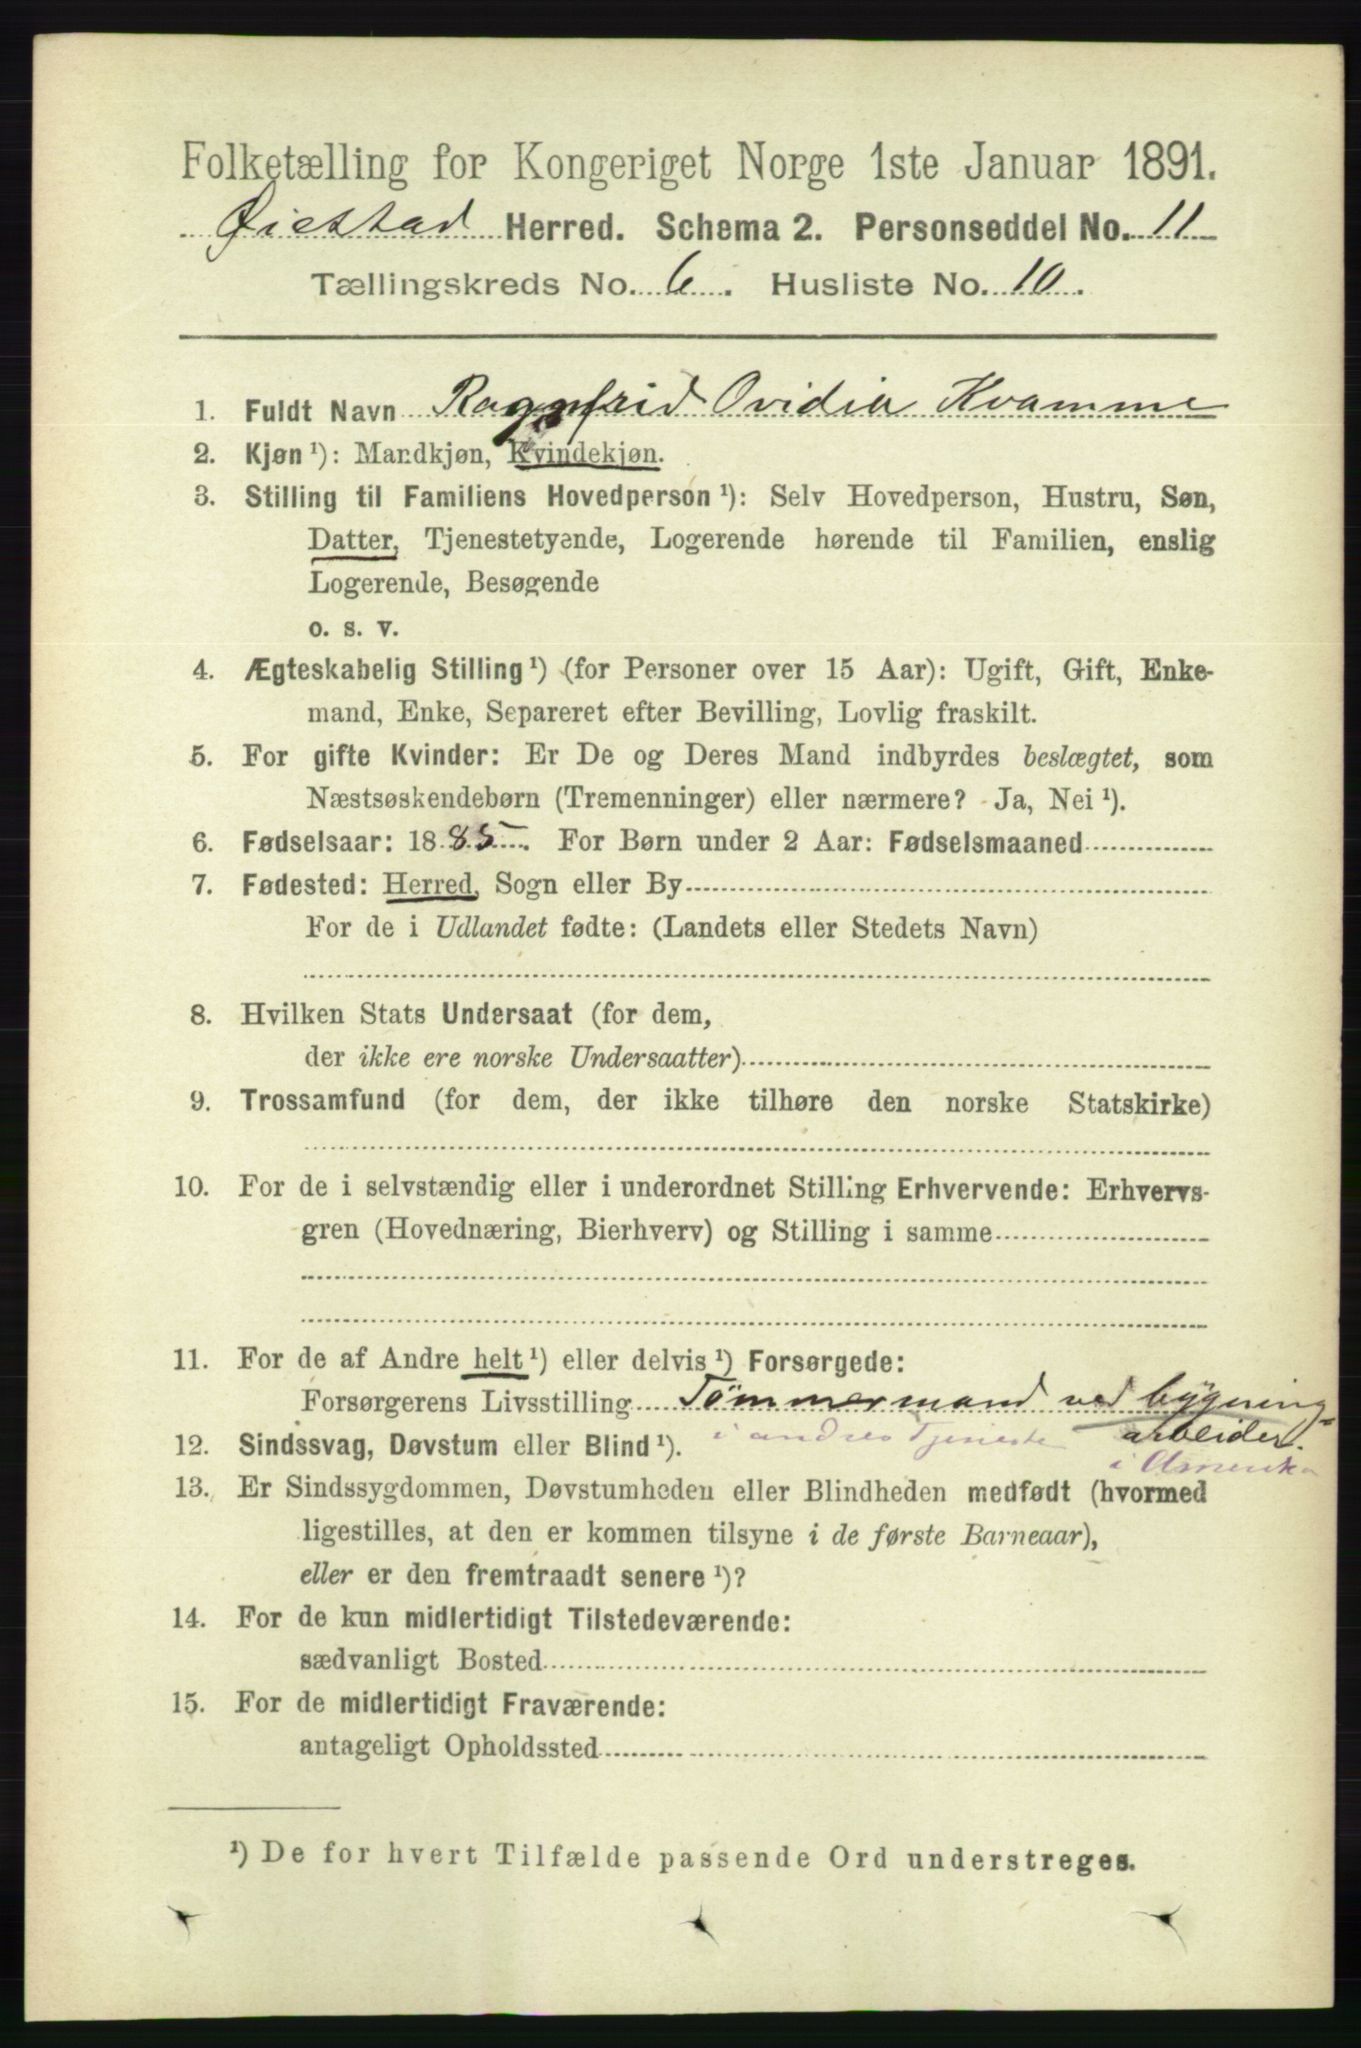 Folketælling for Kongeriget Norge 1ste Januar 1891.
Øiestad Herred. Schema 2. Personseddel No. 11
Tællingskreds No. 6. Husliste No. 10.
1. Fuldt Navn Ragnfrid Ovidia Kvamme
2. Kjøn ¹): Mandkjøn, Kvindekjøn.
3. Stilling til Familiens Hovedperson ¹): Selv Hovedperson, Hustru, Søn,
Datter, Tjenestetyende, Logerende hørende til Familien, enslig
Logerende, Besøgende
o. s. v.
4. Ægteskabelig Stilling ¹) (for Personer over 15 Aar): Ugift, Gift, Enke-
mand, Enke, Separeret efter Bevilling, Lovlig fraskilt.
5. For gifte Kvinder: Er De og Deres Mand indbyrdes beslægtet, som
Næstsøskendebørn (Tremenninger) eller nærmere? Ja, Nei ¹).
6. Fødselsaar: 1885. For Børn under 2 Aar: Fødselsmaaned
7. Fødested: Herred, Sogn eller By
For de i Udlandet fødte: (Landets eller Stedets Navn)
8. Hvilken Stats Undersaat (for dem,
der ikke ere norske Undersaatter)
9. Trossamfund (for dem, der ikke tilhøre den norske Statskirke)
10. For de i selvstændig eller i underordnet Stilling Erhvervende: Erhvervs-
gren (Hovednæring, Bierhverv) og Stilling i samme
11. For de af Andre helt ¹) eller delvis ¹) Forsørgede:
Forsørgerens Livsstilling Tømmermand ved bygning-
12. Sindssvag, Døvstum eller Blind ¹). i andres Tjeneste arbeider.
i Amerika
13. Er Sindssygdommen, Døvstumheden eller Blindheden medfødt (hvormed
ligestilles, at den er kommen tilsyne i de første Barneaar),
eller er den fremtraadt senere ¹)?
14. For de kun midlertidigt Tilstedeværende:
sædvanligt Bosted
15. For de midlertidigt Fraværende:
antageligt Opholdssted
¹) De for hvert Tilfælde passende Ord understreges.